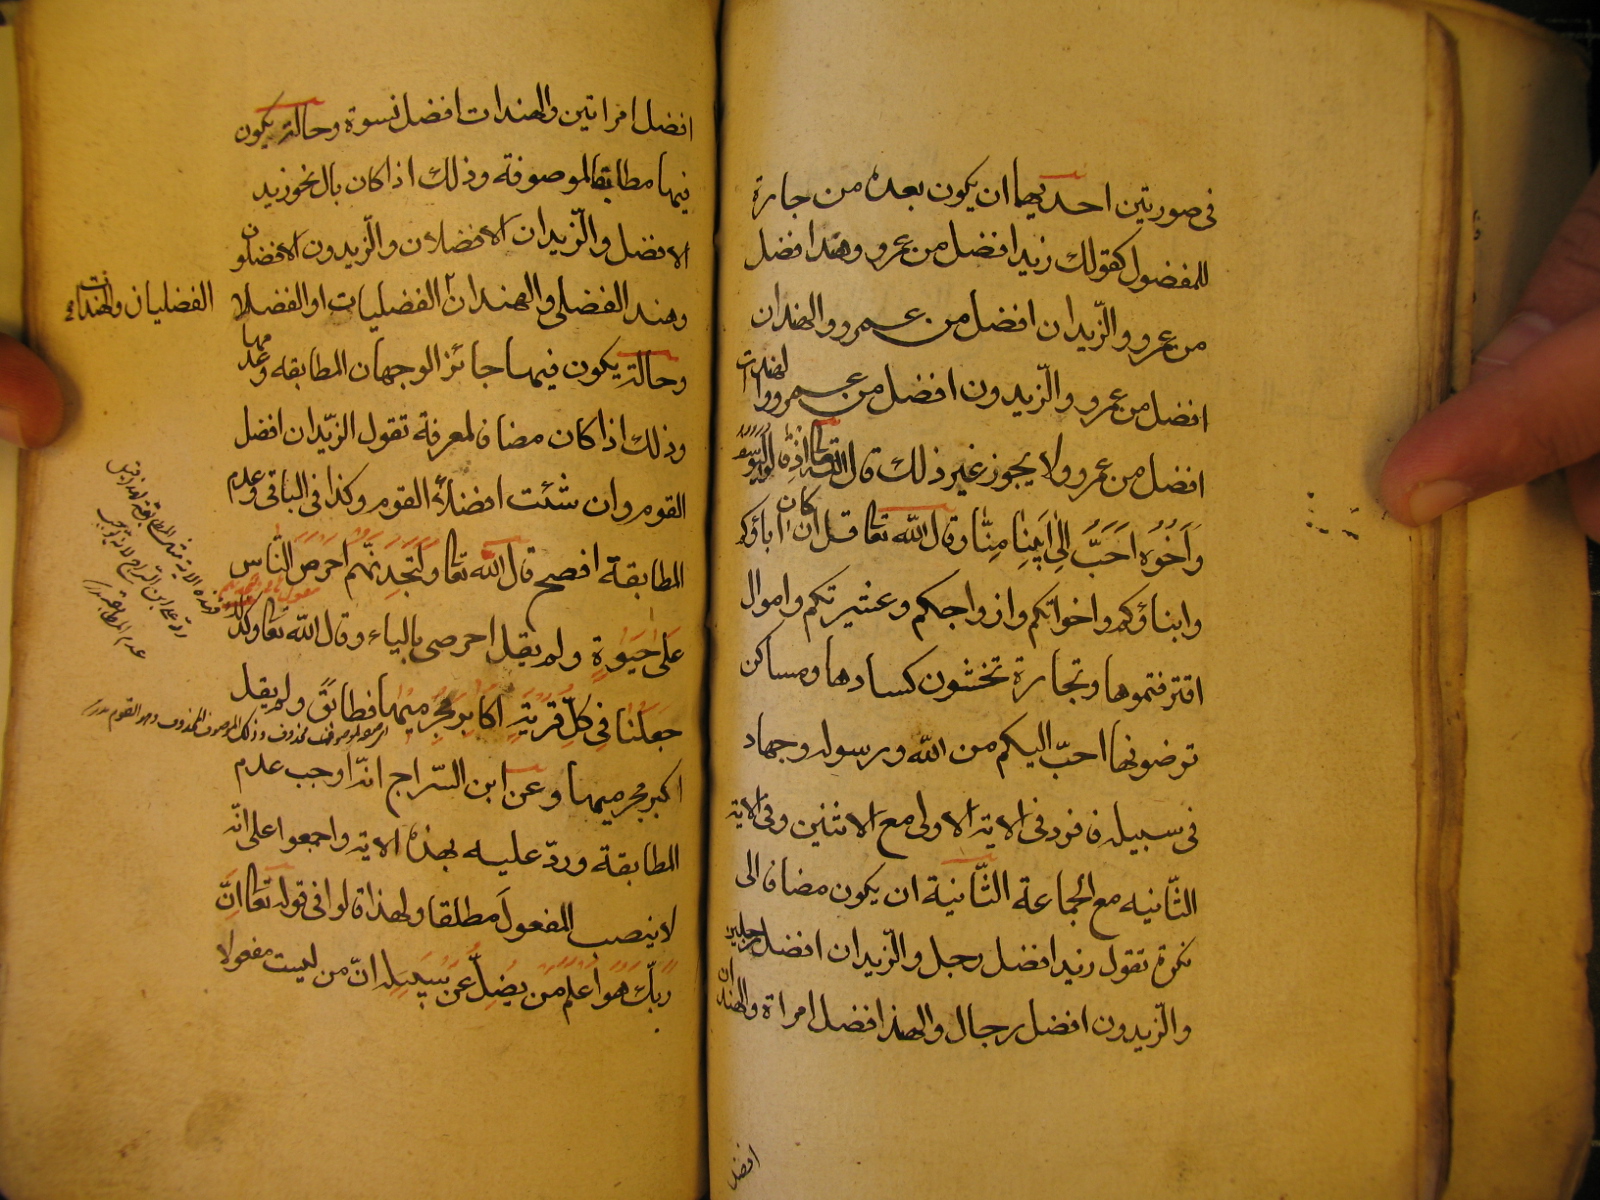 فى صورتين احديهما ان يكون بعده من جارة
للمفضول كقولك زيد افضل من عمرو وهند افضل
من عمرو والزّيدان افضل من عمرو والهندان
افضل من عمرو والزّيدون افضل من عمرو والهندات
افضل من عمرو ولا يجوز غير ذلك قال الله تعا اذ قالوا ليوسف
وَاَخُوهُ اَحَبُّ اِلٰى اَبِينَا مِنَّا وقال الله تعا قل ان كان اباؤكم
وابناؤكم واخوانكم وازواجكم وعشيرتكم واموال
اقترفتموها وتجارة تخشون كسادها ومساكن
ترضونها احبّ اليكم من الله ورسوله وجهاد
فى سبيله فافرد فى الاية الاولى مع الاثنين وفى الاية
الثّانيه مع الجماعة الثّانية ان يكون مضافا الى
نكرة تقول زيد افضل رجل والزّيدان افضل رجلين
والزّيدون افضل رجال والهند افضل امراة والهندان
افضل
افضل امراتين والهندات افضل نسوة وحالة يكون
فيها مطابقا لموصوفة وذلك اذا كان بال نحو زيد
الافضل والزّيدان الافضلان والزّيدون الافضلون
وهند الفضلى والهندان الفضليات او الفضل
الفضليان والهندات
وحالة يكون فيها جائز الوجهان المطابقه وعدمها
وذلك اذا كان مضافا لمعرفة تقول الزّيدان افضل
القوم وان شئت افضلا القوم وكذا فى الباقى وعدم
المطابقة افصح قال الله تعا وَلَتَجِدَنَّهُم اَحرَصَ النَّاس
عَلٰى حَيٰوةٍ ولم يقل احرصى بالياء وقال الله تعا وكذلك
جَعَلنَا فِى كُلِّ قَريَةٍ اَكَابِرَ مُجرِمِيهَا فطابق ولم يقل
اكبر مجرميها وعن ابن السّراج انّه اوجب عدم
المطابقة وردّ عليه بهذه الاية واجمعوا على انّه
لا ينصب المفعول مطلقا ولهذا قالوا فى قوله تعا اِنَّ
رَبَّكَ هُوَ اَعلَمُ مَن يَضِلُّ عَن سَبِيلِه انّ من ليست مفعولا